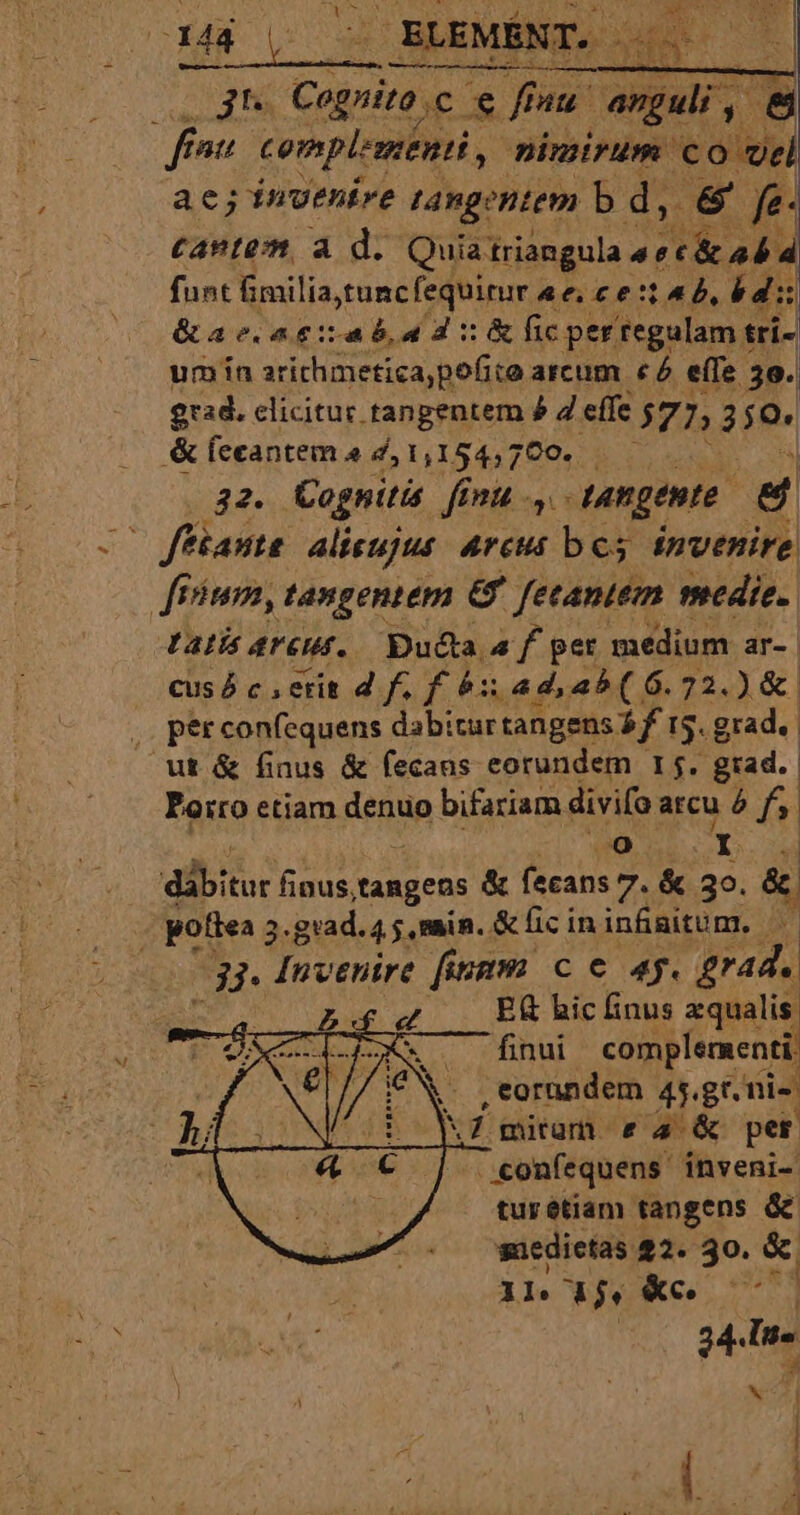 144 ELEMENT.
31. Cognito c e ſinu anguli, &
ſinu complementi, nimirum c o vel
a e; invenire tangentem b d, & ſe-
cantem a d. Quia triangula a e c & a b d
ſunt ſimilia, tunc ſequitur a e. c e :: a b, b d ::
& a e. a c :: a b, a d :: & ſic per regulam tri-
um in arithmetica, poſito arcum c b eſſe 30.
grad. elicitur tangentem b d eſſe 577, 350.
& ſecantem a d, 1,154,700.
32. Cognitis ſinu, tangente &
ſecante alicujus arcus b c; invenire
ſinum, tangentem & ſecantem medie-
tatis arcus. Ducta a f per medium ar-
cus b c, erit d f, f b :: a d, a b ( 6. 72. ) &
per conſequens dabitur tangens b f 15. grad.
ut & ſinus & ſecans eorundem 15. grad.
Porro etiam denuo bifariam diviſo arcu b f,
0 I
dabitur ſinus, tangens & ſecans 7. & 30. &
poſtea 3. grad. 45. min. & ſic in infinitum.
33. Invenire ſinum c e 45. grad.
Eſt hic ſinus æqualis
ſinui complementi
eorundem 45. gr. ni-
mirum e a & per
conſequens inveni-
tur etiam tangens &
medietas 22. 30. &
11. 15, &c.
34. In-
g b f d
e e
h i l
a c